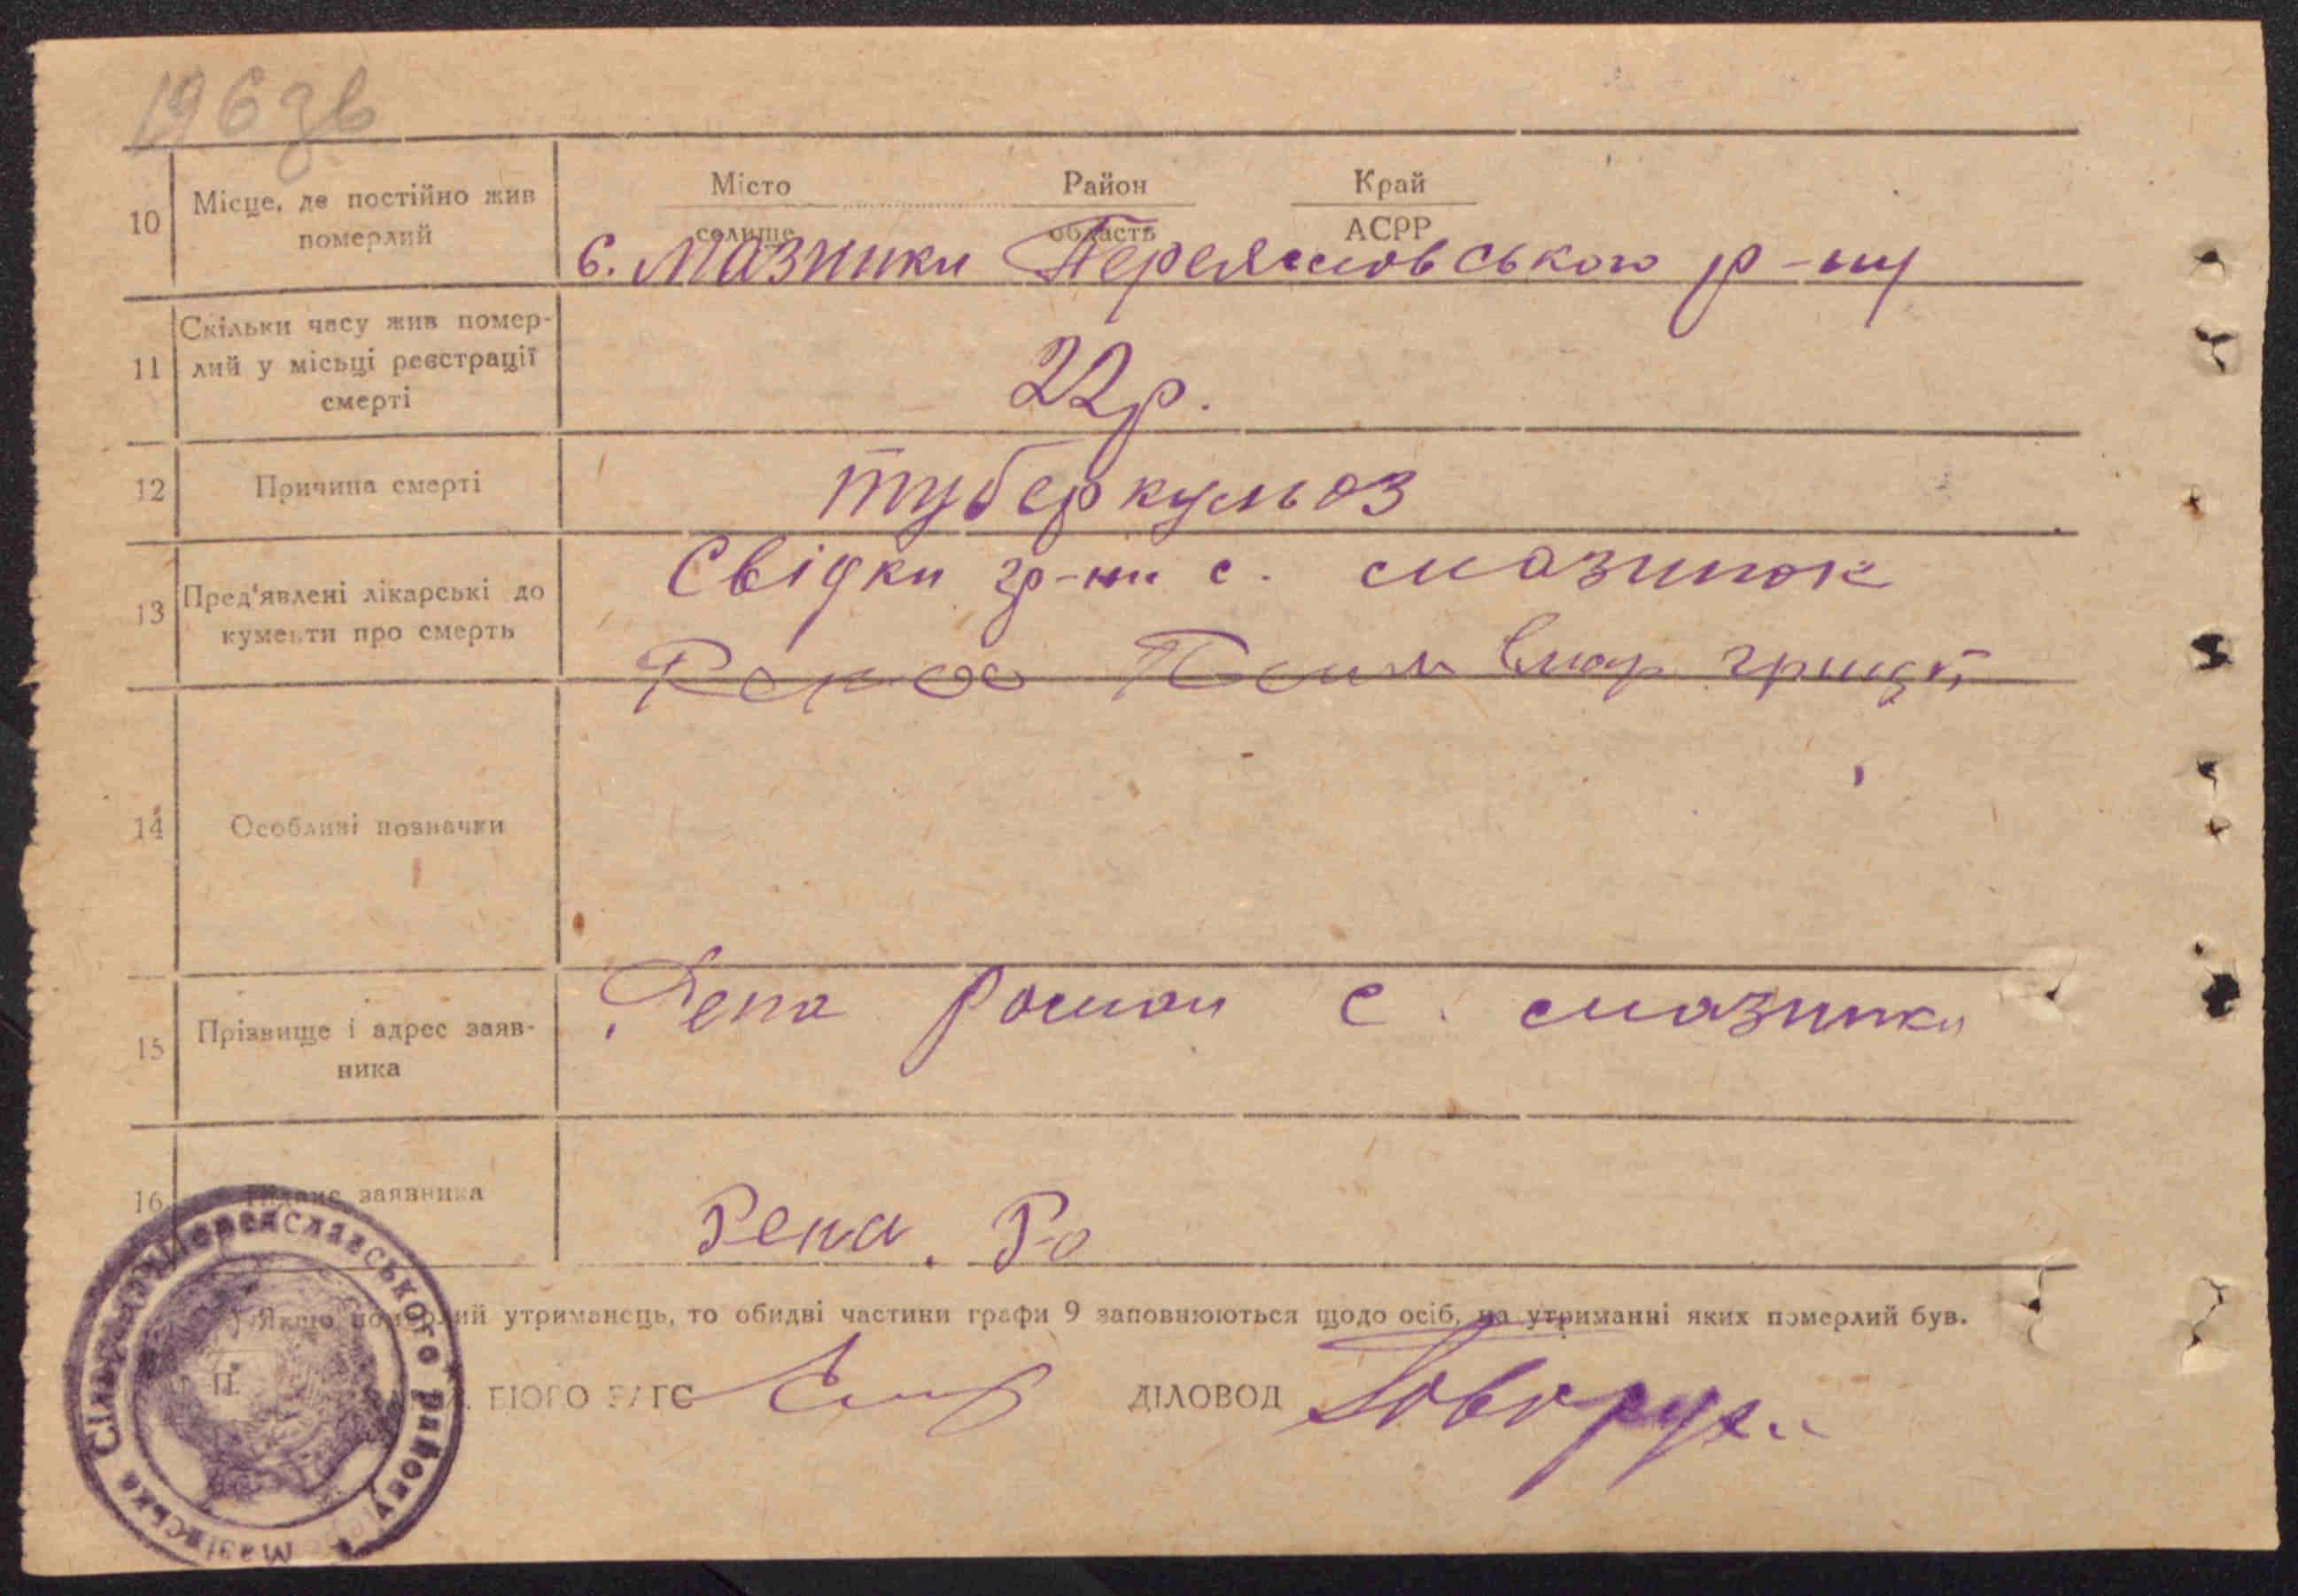 196 зв
10
Місце, де постійно жив
померлий
Місто
селище
Район
область
Край
АСРР
с. Мазники Переяславського р-ну
11
Скільки часу жив помер-
лий у місьці реєстрації
смерті
22р.
12
Причина смерті
туберкульоз
13
Пред'явлені лікарські до
кументи про смерть
Свідки гр-ни с. мазинок
14
Особливі позначки
15
Прізвище і адрес заяв-
ника
Репа Роман с. мазинки
16
Підпис заявника
Репа. Ро
Якщо померлий утриманець, то обидві частини графи 9 заповнюються щодо осіб, на утриманні яких померлий був.
П.
БЮРО ЗАГС
ДІЛОВОД
Сільрада Переяславського району